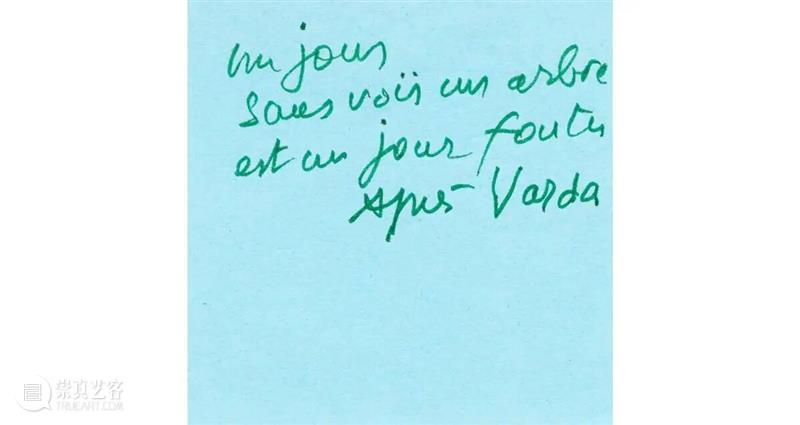 un jour
sans voir un arbre
est un jour foutu
Agnès Varda
崇真艺客
TRUEART.COM